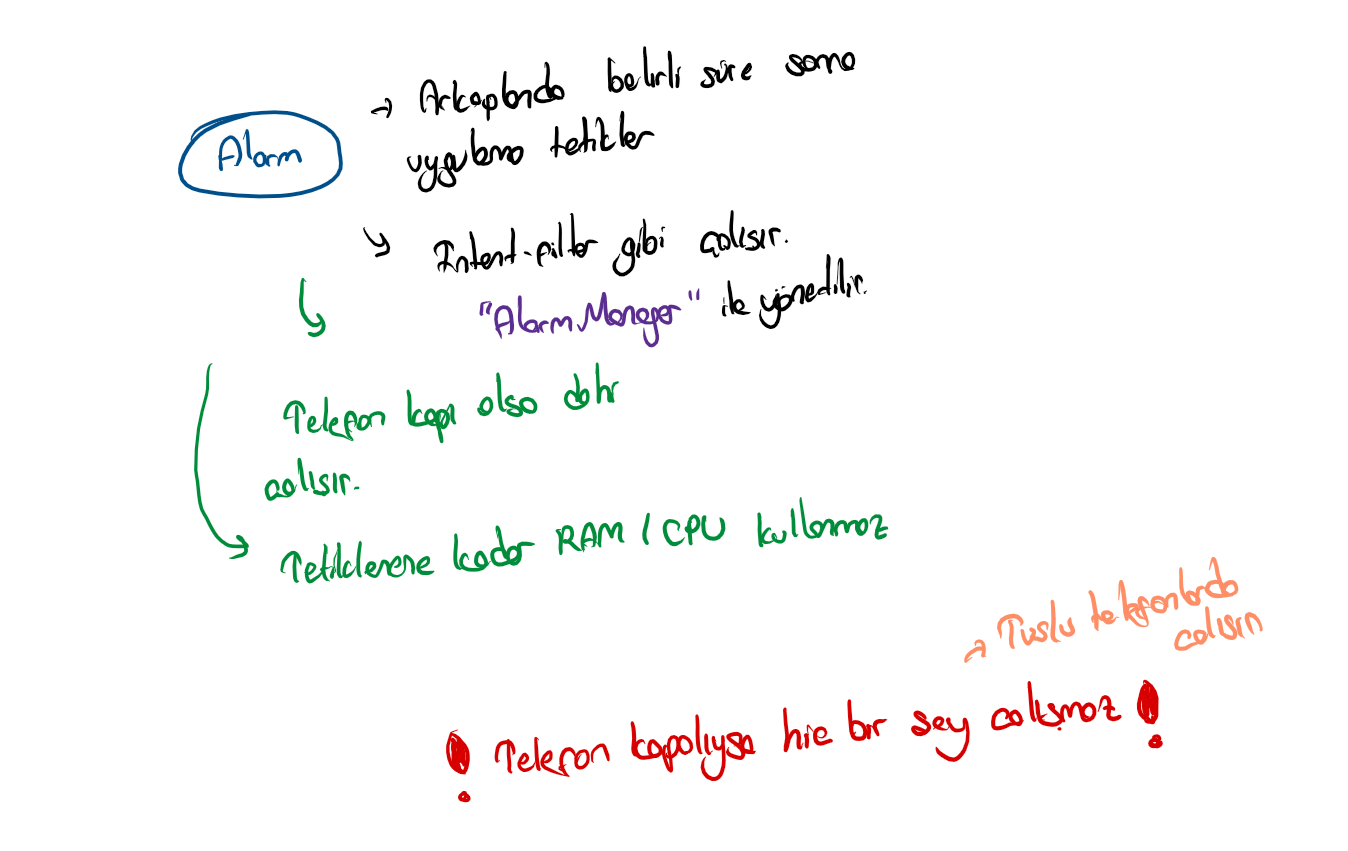 Alarm
→ Arkaplanda belirli süre sonra
uygulama tetikler
↘ Intent-filter gibi çalışır.
"Alarm Manager" ile yönedilir.
Telefon kapı olsa dahi
calısır.
Tetiklenene kadar RAM / CPU kullanmaz
→ Tuslu telefonlarda
calısın
! Telefon kapalıysa hic bir sey calışmaz !